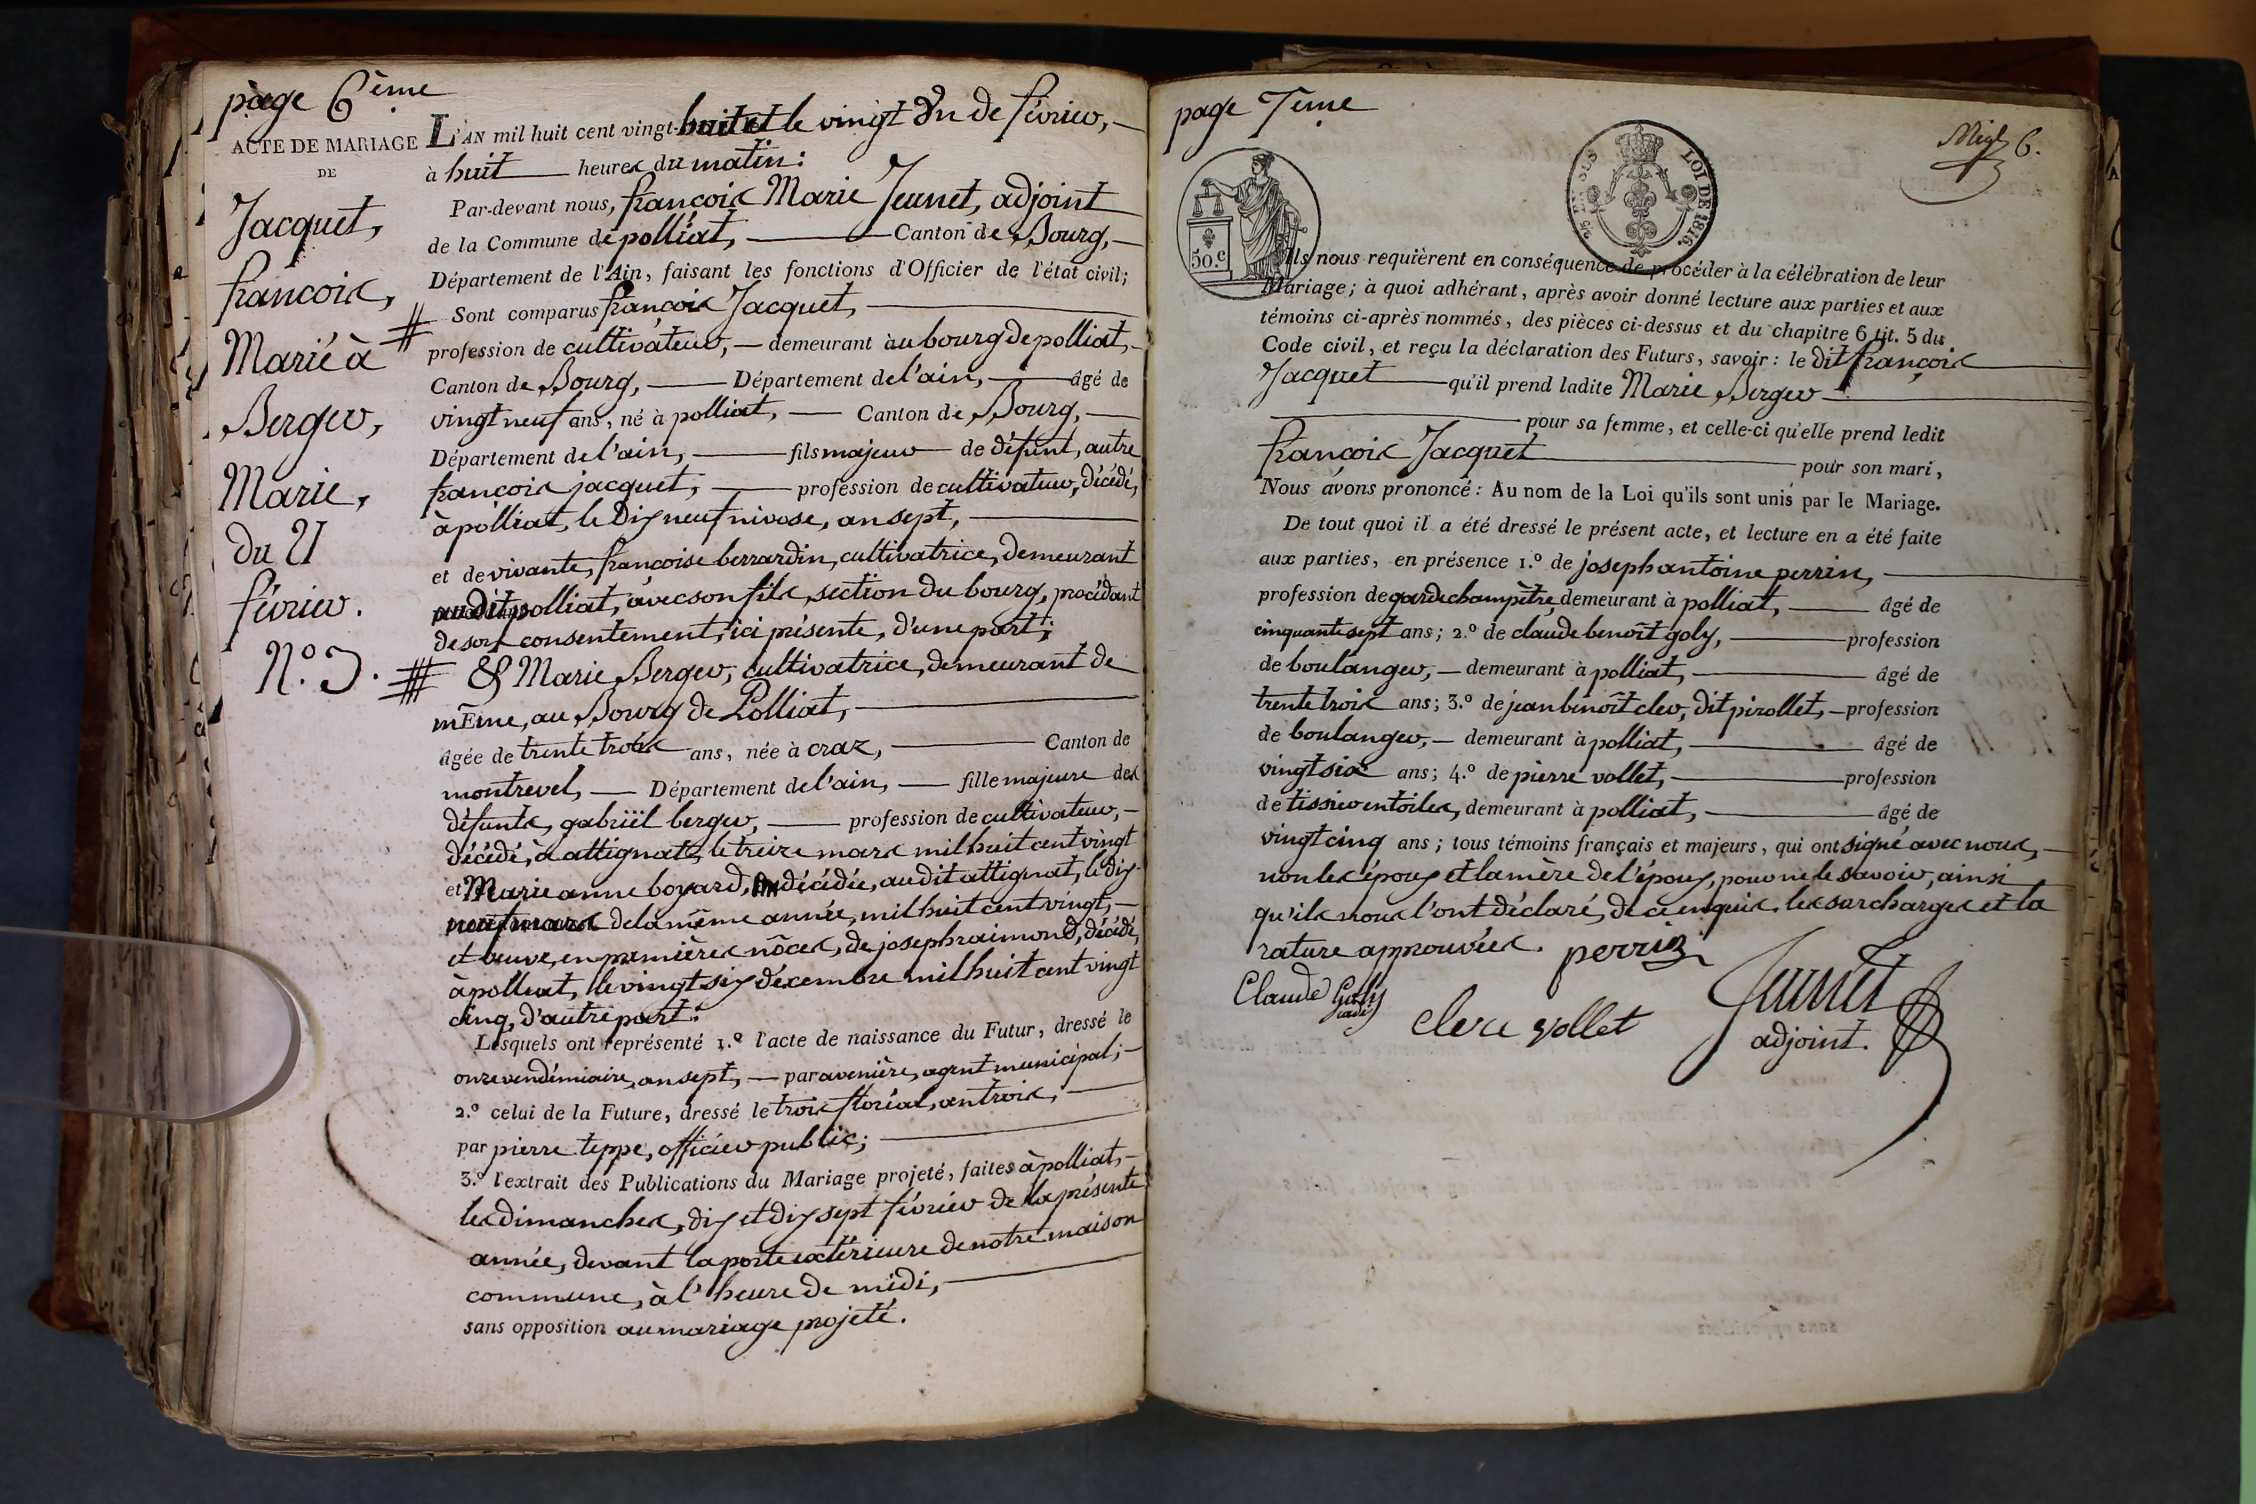 page 6ème
ACTE DE MARIAGE
DE
Jacquet,
françois,
Marié à
Berger,
Marie,
du 21
février.
N.° 3.
L'AN mil huit cent vingt-huit et le vingt un de février,
à huit heures du matin:
Par-devant nous, françois Marie Jeunet, adjoint
de la Commune de polliat, Canton de Bourg,
Département de l'Ain, faisant les fonctions d'Officier de l'état civil;
Sont comparus françois Jacquet,
profession de cultivateur, demeurant au bourg de polliat,
Canton de Bourg, Département de l'ain, âgé de
vingt neuf ans, né à polliat, Canton de Bourg,
Département de l'ain, fils majeur de défunt, autre
françois jacquet, profession de cultivateur, décédé,
à polliat, le dix neuf nivose, an sept,
et de vivante, françoise berrardin, cultivatrice, demeurant
audit polliat, avec son fils, section du bourg, procédant
de son consentement, ici présente, d'une part;
& Marie Berger, cultivatrice, demeurant de
même, au Bourg de Polliat,
âgée de trente trois ans, née à craz, Canton de
montrevel, Département de l'ain, fille majeure des
défunts, gabriël berger, profession de cultivateur,
décédé, à attignat, le treize mars mil huit cent vingt
et Marie anne boyard, décédée, audit attignat, le dix
neuf mars de la même année, mil huit cent vingt,
et veuve, en premières nôces, de joseph raimond, décédé,
à polliat, le vingt six décembre mil huit cent vingt
cinq, d'autre part.
Lesquels ont représenté 1.° l'acte de naissance du Futur, dressé le
onze vendémiaire, an sept, par avenière, agent municipal;
2.° celui de la Future, dressé le trois floréal, an trois,
par pierre teppe, officier public;
3.° l'extrait des Publications du Mariage projeté, faites à polliat,
les dimanches, dix et dix sept février de la présente
année, devant la porte extérieure de notre maison
commune, à l'heure de midi,
sans opposition au mariage projeté.
page 7ème
50.c
LOI DE 1816.
6.
Ils nous requièrent en conséquence de procéder à la célébration de leur
Mariage; à quoi adhérant, après avoir donné lecture aux parties et aux
témoins ci-après nommés, des pièces ci-dessus et du chapitre 6 tit. 5 du
Code civil, et reçu la déclaration des Futurs, savoir: le dit françois
Jacquet qu'il prend ladite Marie Berger
pour sa femme, et celle-ci qu'elle prend ledit
françois Jacquet pour son mari,
Nous avons prononcé: Au nom de la Loi qu'ils sont unis par le Mariage.
De tout quoi il a été dressé le présent acte, et lecture en a été faite
aux parties, en présence 1.° de joseph antoine perrin,
profession de garde champêtre, demeurant à polliat, âgé de
cinquante sept ans; 2.° de claude benoît goly, profession
de boulanger, demeurant à polliat, âgé de
trente trois ans; 3.° de jean benoît clerc, dit pirollet, profession
de boulanger, demeurant à polliat, âgé de
vingt six ans; 4.° de pierre vollet, profession
de tissier en toiles, demeurant à polliat, âgé de
vingt cinq ans; tous témoins français et majeurs, qui ont signé avec nous,
non les époux et la mère de l'époux, pour ne le savoir, ainsi
qu'ils nous l'ont déclaré, de ce enquis. les surcharges et la
rature approuvées. perrin
Claude Goly
clerc vollet
Jeunet
adjoint.